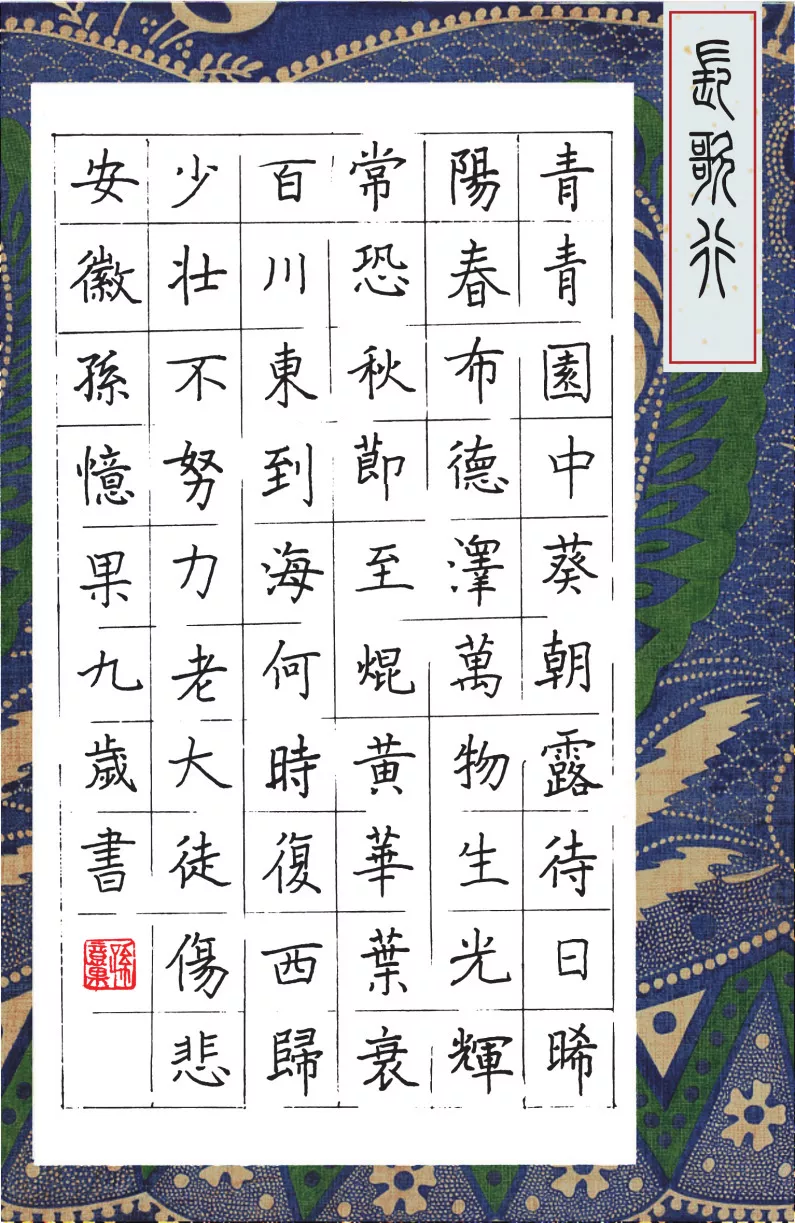 長歌行
青青園中葵朝露待日晞
陽春布德澤萬物生光輝
常恐秋節至焜黃華葉衰
百川東到海何時復西歸
少壯不努力老大徒傷悲
安徽孫憶果九歲書